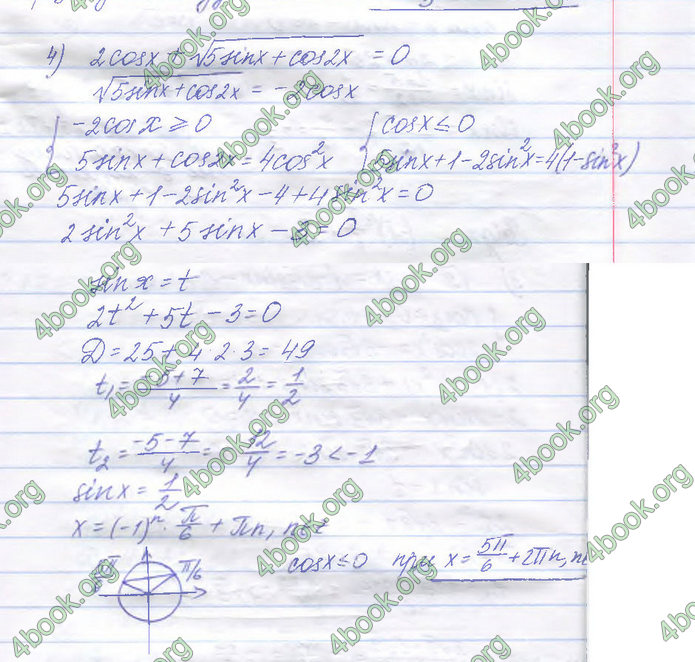 4) 2cosx + √5sinx + cos2x = 0
√5sinx + cos2x = -2cosx
{ -2cosx ≥ 0 { cosx ≤ 0
5sinx + cos2x = 4cos²x 5sinx + 1 - 2sin²x = 4(1 - sin²x)
5sinx + 1 - 2sin²x - 4 + 4sin²x = 0
2sin²x + 5sinx - 3 = 0
sinx = t
2t² + 5t - 3 = 0
D = 25 + 4·2·3 = 49
t₁ = (-5+7)/4 = 2/4 = 1/2
t₂ = (-5-7)/4 = -12/4 = -3 < -1
sinx = 1/2
x = (-1)ⁿ · π/6 + πn, n∈z
5π/6 π/6 cosx ≤ 0 при x = 5π/6 + 2πn, n∈
4book.org